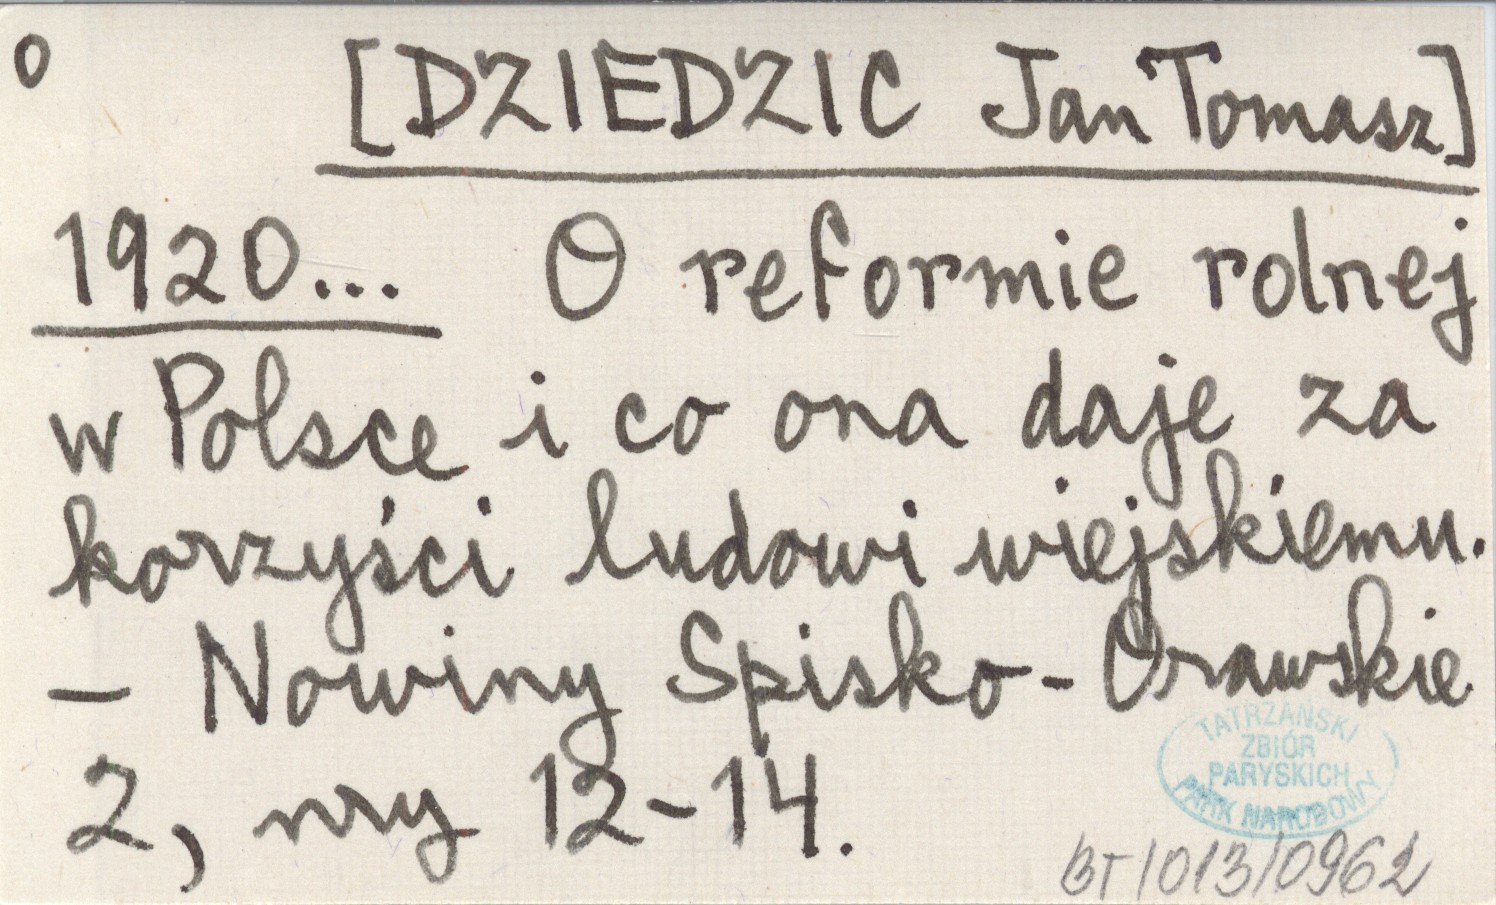 0 [DZIEDZIC Jan Tomasz]
1920... O reformie rolnej
w Polsce i co ona daje za
korzyści ludowi wiejskiemu.
- Nowiny Spisko-Orawskie
2, nry 12-14.
TATRZAŃSKI
ZBIÓR
PARYSKICH
PARK NARODOWY
BT/013/0962